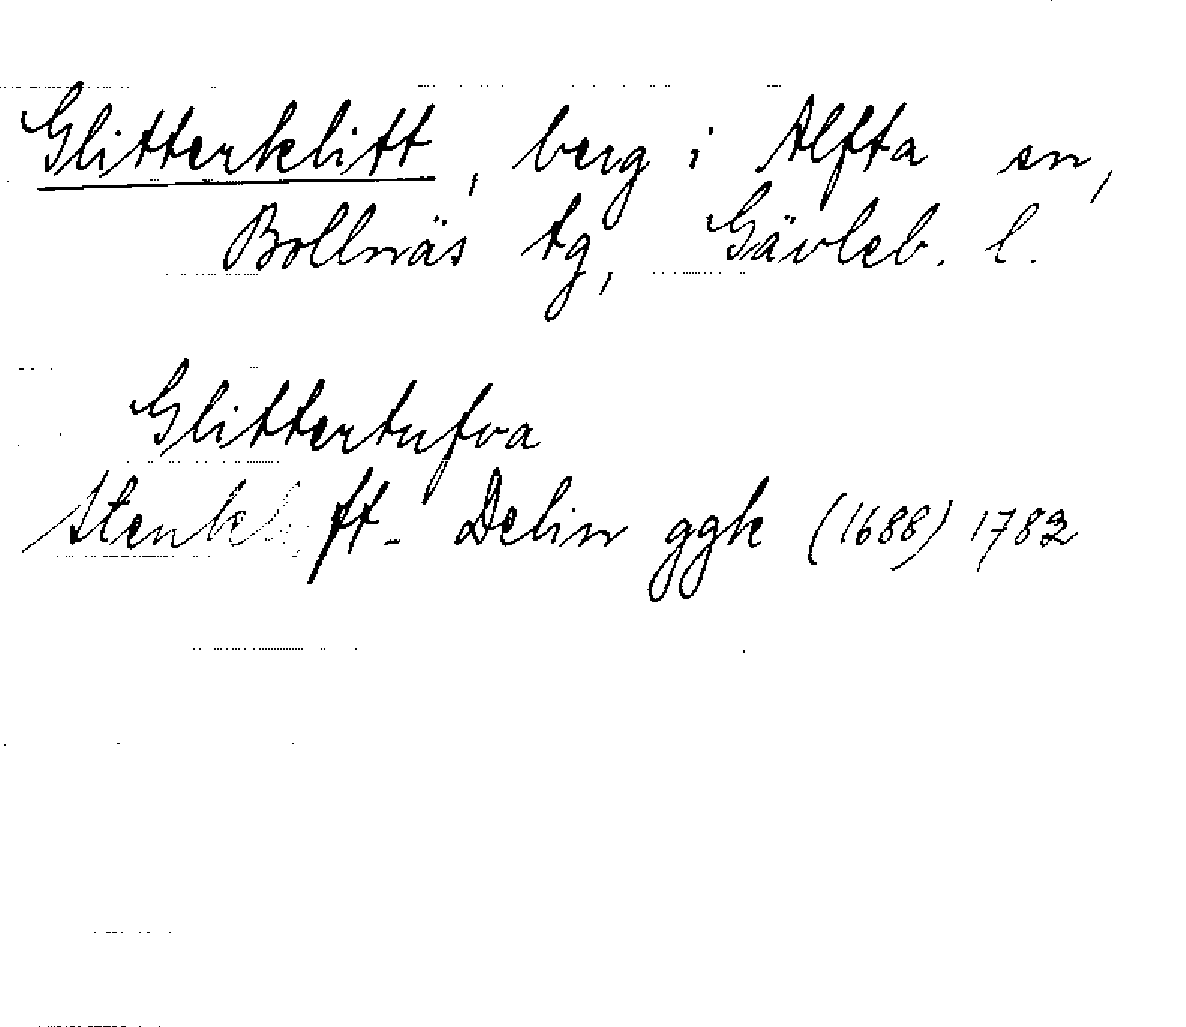 Glitterklitt, berg i Alfta sn,
Bollnäs tg, Gävleb. l.
Glittertufva
Delin ggk (1688) 1782